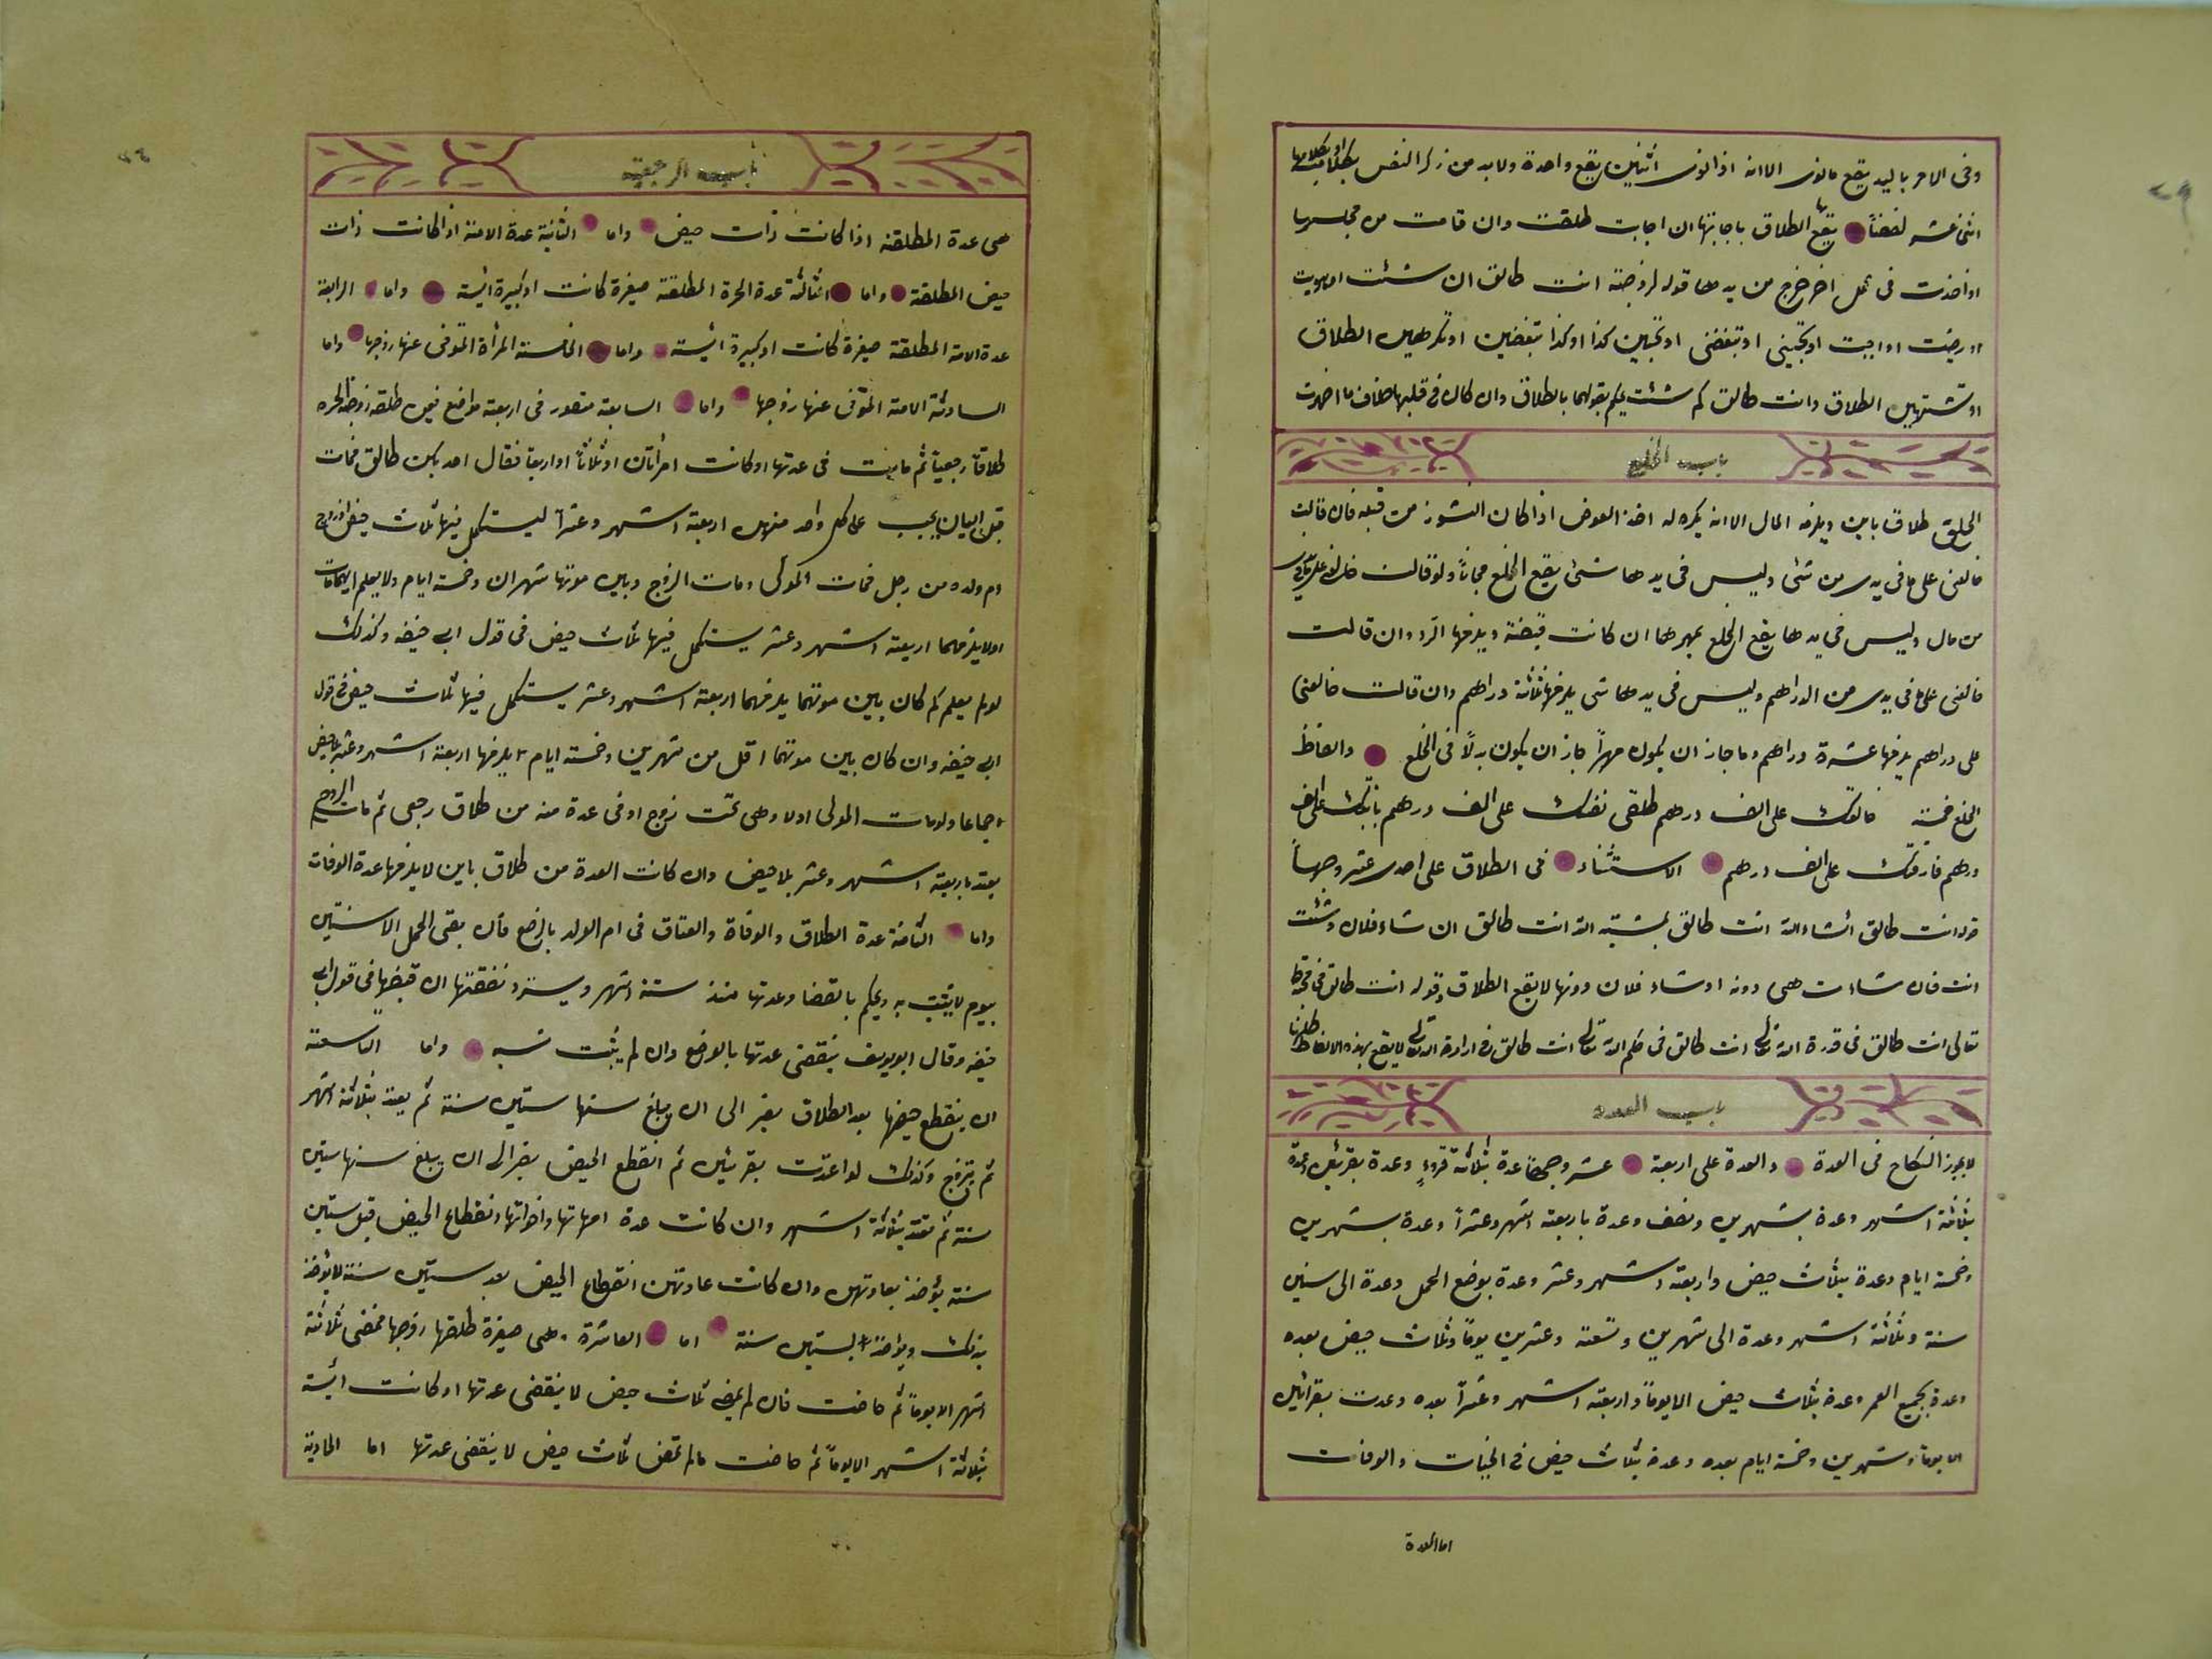 وفى الامر باليد يقع مانوى الا انه اذا نوى اثنين يقع واحدة ولا بد من ذكر النفس
اثنى عشر لفظاً يقع بها الطلاق باجابتها ان اجابت طلقت وان قامت من مجلسها
او اخذت فى عمل اخر خرج من يدها قوله لزوجته انت طالق ان شئت او هويت
او رضيت او احببت او تحبينى او تبغضى او تحبين كذا او كذا تبغضين او تكرهين الطلاق
او تشتهين الطلاق وانت طالق كم شئت يحكم بقولهما بالطلاق وان كان فى قلبها خلاف ما اخبرت
باب الخلع
الخلع طلاق باين ويلزمه المال الا انه يكره له اخذ العوض اذا كان النشوز من قبله فان قالت
خالعنى على ما فى يدى من شئ وليس فى يدها شئ يقع الخلع مجاناً ولو قالت خالعنى على ما فى يدى
من مال وليس فى يدها يقع الخلع بمهرها ان كانت قبضته ويلزمها الرد وان قالت
خالعنى على ما فى يدى من الدراهم وليس فى يدها شئ يلزمها ثلثة دراهم وان قالت خالعنى
على دراهم يلزمها عشرة دراهم وما جاز ان يكون مهراً جاز ان يكون بدلاً فى الخلع والفاظ
الخلع خمسة خالعتك على الف درهم طلقى نفسك على الف درهم باينتك على الف
درهم فارقتك على الف درهم الاستثناء فى الطلاق على احدى عشر وجهاً
قوله انت طالق انشاء الله انت طالق بمشية الله انت طالق ان شاء فلان وشئت
انت فان شاءت هى دونه او شاء فلان دونها لا يقع الطلاق وقوله انت طالق فى
تعالى انت طالق فى قدرة الله تعالى انت طالق فى حكم الله تعالى انت طالق فى ارادة الله تعالى لا يقع بهذه الالفاظ
باب العدة
لا يجوز النكاح فى العدة والعدة على اربعة عشر وجهاً عدة بثلاثة قروء وعدة بقرئين وعدة
بثلثة اشهر وعدة بشهرين ونصف وعدة باربعة اشهر وعشراً وعدة بشهرين
وخمسة ايام وعدة بثلاث حيض واربعة اشهر وعشر وعدة بوضع الحمل وعدة الى سنين
سنة وثلثة اشهر وعدة الى شهرين وتسعة وعشرين يوماً وثلاث حيض بعده
وعدة بجميع العمر وعدة بثلاث حيض الا يوماً واربعة اشهر وعشراً بعده وعدت بقرائين
الا يوماً وشهرين وخمسة ايام بعده وعدة بثلاث حيض فى الخيات والوفات
اما العدة
باب الرجعية
هى عدة المطلقة اذا كانت ذات حيض واما الثانية عدة الامة اذا كانت ذات
حيض المطلقة واما الثالثة عدة الحرة المطلقة صغيرة كانت او كبيرة ائسة واما الرابعة
عدة الامة المطلقة صغيرة كانت او كبيرة ائسة واما الخامسة المرأة المتوفى عنها زوجها واما
السادسة الامة المتوفى عنها زوجها واما السابعة متصور فى اربعة مواضع فيمن طلق زوجته الحره
طلاقاً رجعياً ثم مات فى عدتها او كانت امرأتان او ثلاثاً او اربعاً فقال احديكن طالق فمات
قبل البيان يجب على كل واحد منهن اربعة اشهر وعشراً ليستكمل فيها ثلاث حيض
ام ولده من رجل فمات المولى ومات الزوج وبين موتهما شهران وخمسة ايام ولا يعلم ايهما مات
اولا يلزمها اربعة اشهر وعشر يستكمل فيها ثلاث حيض فى قول ابى حنيفه وكذلك
لو لم يعلم كم كان بين موتهما يلزمها اربعة اشهر وعشر يستكمل فيها ثلاث حيض فى قول
ابى حنيفه وان كان بين موتهما اقل من شهرين وخمسة ايام يلزمها اربعة اشهر وعشر بلا حيض
اجماعا ولو مات المولى اولا وهى تحت زوج او فى عدة منه من طلاق رجعى ثم مات الزوج
يعتد باربعة اشهر وعشر بلا حيض وان كانت العدة من طلاق باين لا يلزمها عدة الوفات
واما الثامنة عدة الطلاق والوفاة والعتاق فى ام الولد بالوضع فان بقى الحمل الا سنتين
بيوم لا يثبت به ويحكم بالقضا وعدتها منذ ستة اشهر ويسترد نفقتها ان قبضها فى قول ابى
حنيفه وقال ابو يوسف ينقضى عدتها بالوضع وان لم يثبت نسبه واما التاسعة
ان ينقطع حيضها بعد الطلاق بقر الى ان يبلغ سنها ستين سنة ثم يعتد بثلاثة اشهر
ثم يتزوج وكذلك لو اعتدت بقرئين ثم انقطع الحيض بقر الى ان يبلغ سنها ستين
سنة ثم تعتد بثلاثة اشهر وان كانت عدة امهاتها واخواتها وانقطاع الحيض قبل ستين
سنة يؤخذ بعادتهن وان كانت عادتهن انقطاع الحيض بعد ستين سنة لا يؤخذ
بذلك ويؤاخذ لستين سنة اما العاشرة هى صغيرة طلقها زوجها فمضى ثلاثة
اشهر الا يوماً ثم حاضت فان لم يمضى ثلاث حيض لا ينقضى عدتها او كانت ائسة
بثلاثة اشهر الا يوماً ثم حاضت ما لم تمض ثلاث حيض لا ينقضى عدتها اما الحادية